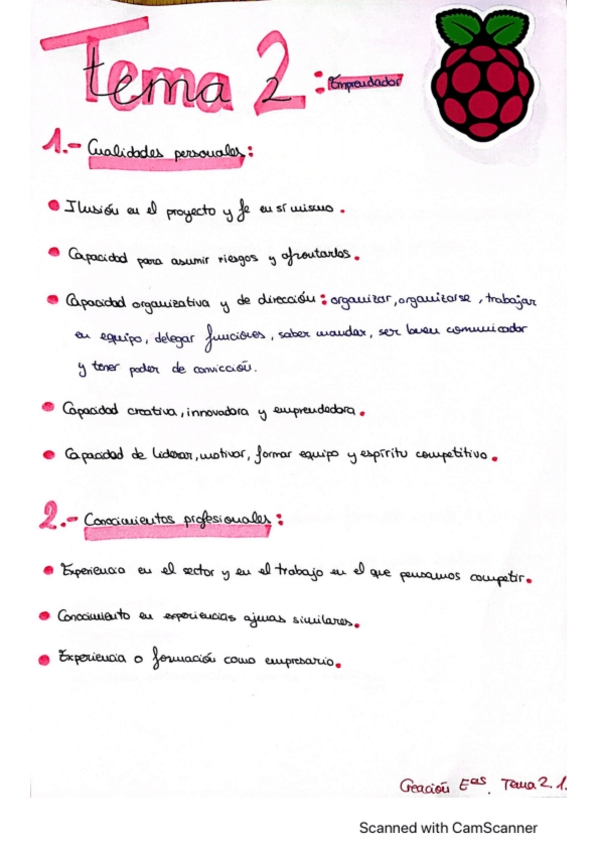 Tema 2: Emprendedor
1.- Cualidades personales:
Ilusión en el proyecto y fe en sí mismo.
Capacidad para asumir riesgos y afrontarlos.
Capacidad organizativa y de dirección: organizar, organizarse, trabajar
en equipo, delegar funciones, saber mandar, ser buen comunicador
y tener poder de convicción.
Capacidad creativa, innovadora y emprendedora.
Capacidad de liderar, motivar, formar equipo y espíritu competitivo.
2.- Conocimientos profesionales:
Experiencia en el sector y en el trabajo en el que pensamos competir.
Conocimiento en experiencias ajenas similares.
Experiencia o formación como empresario.
Creación Eas. Tema 2. 1.
Scanned with CamScanner